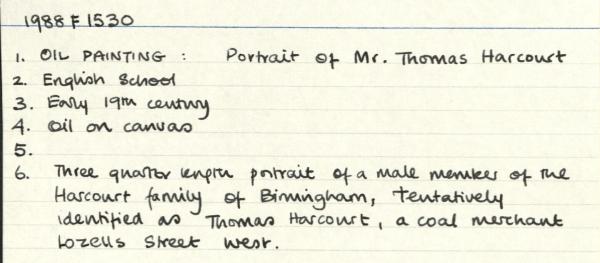 1988 F 1530
1. OIL PAINTING : Portrait of Mr. Thomas Harcourt
2. English School
3. Early 19th century
4. Oil on canvas
5.
6. Three quarter length portrait of a male member of the
Harcourt family of Birmingham, tentatively
identified as Thomas Harcourt, a coal merchant
Lozells Street West.